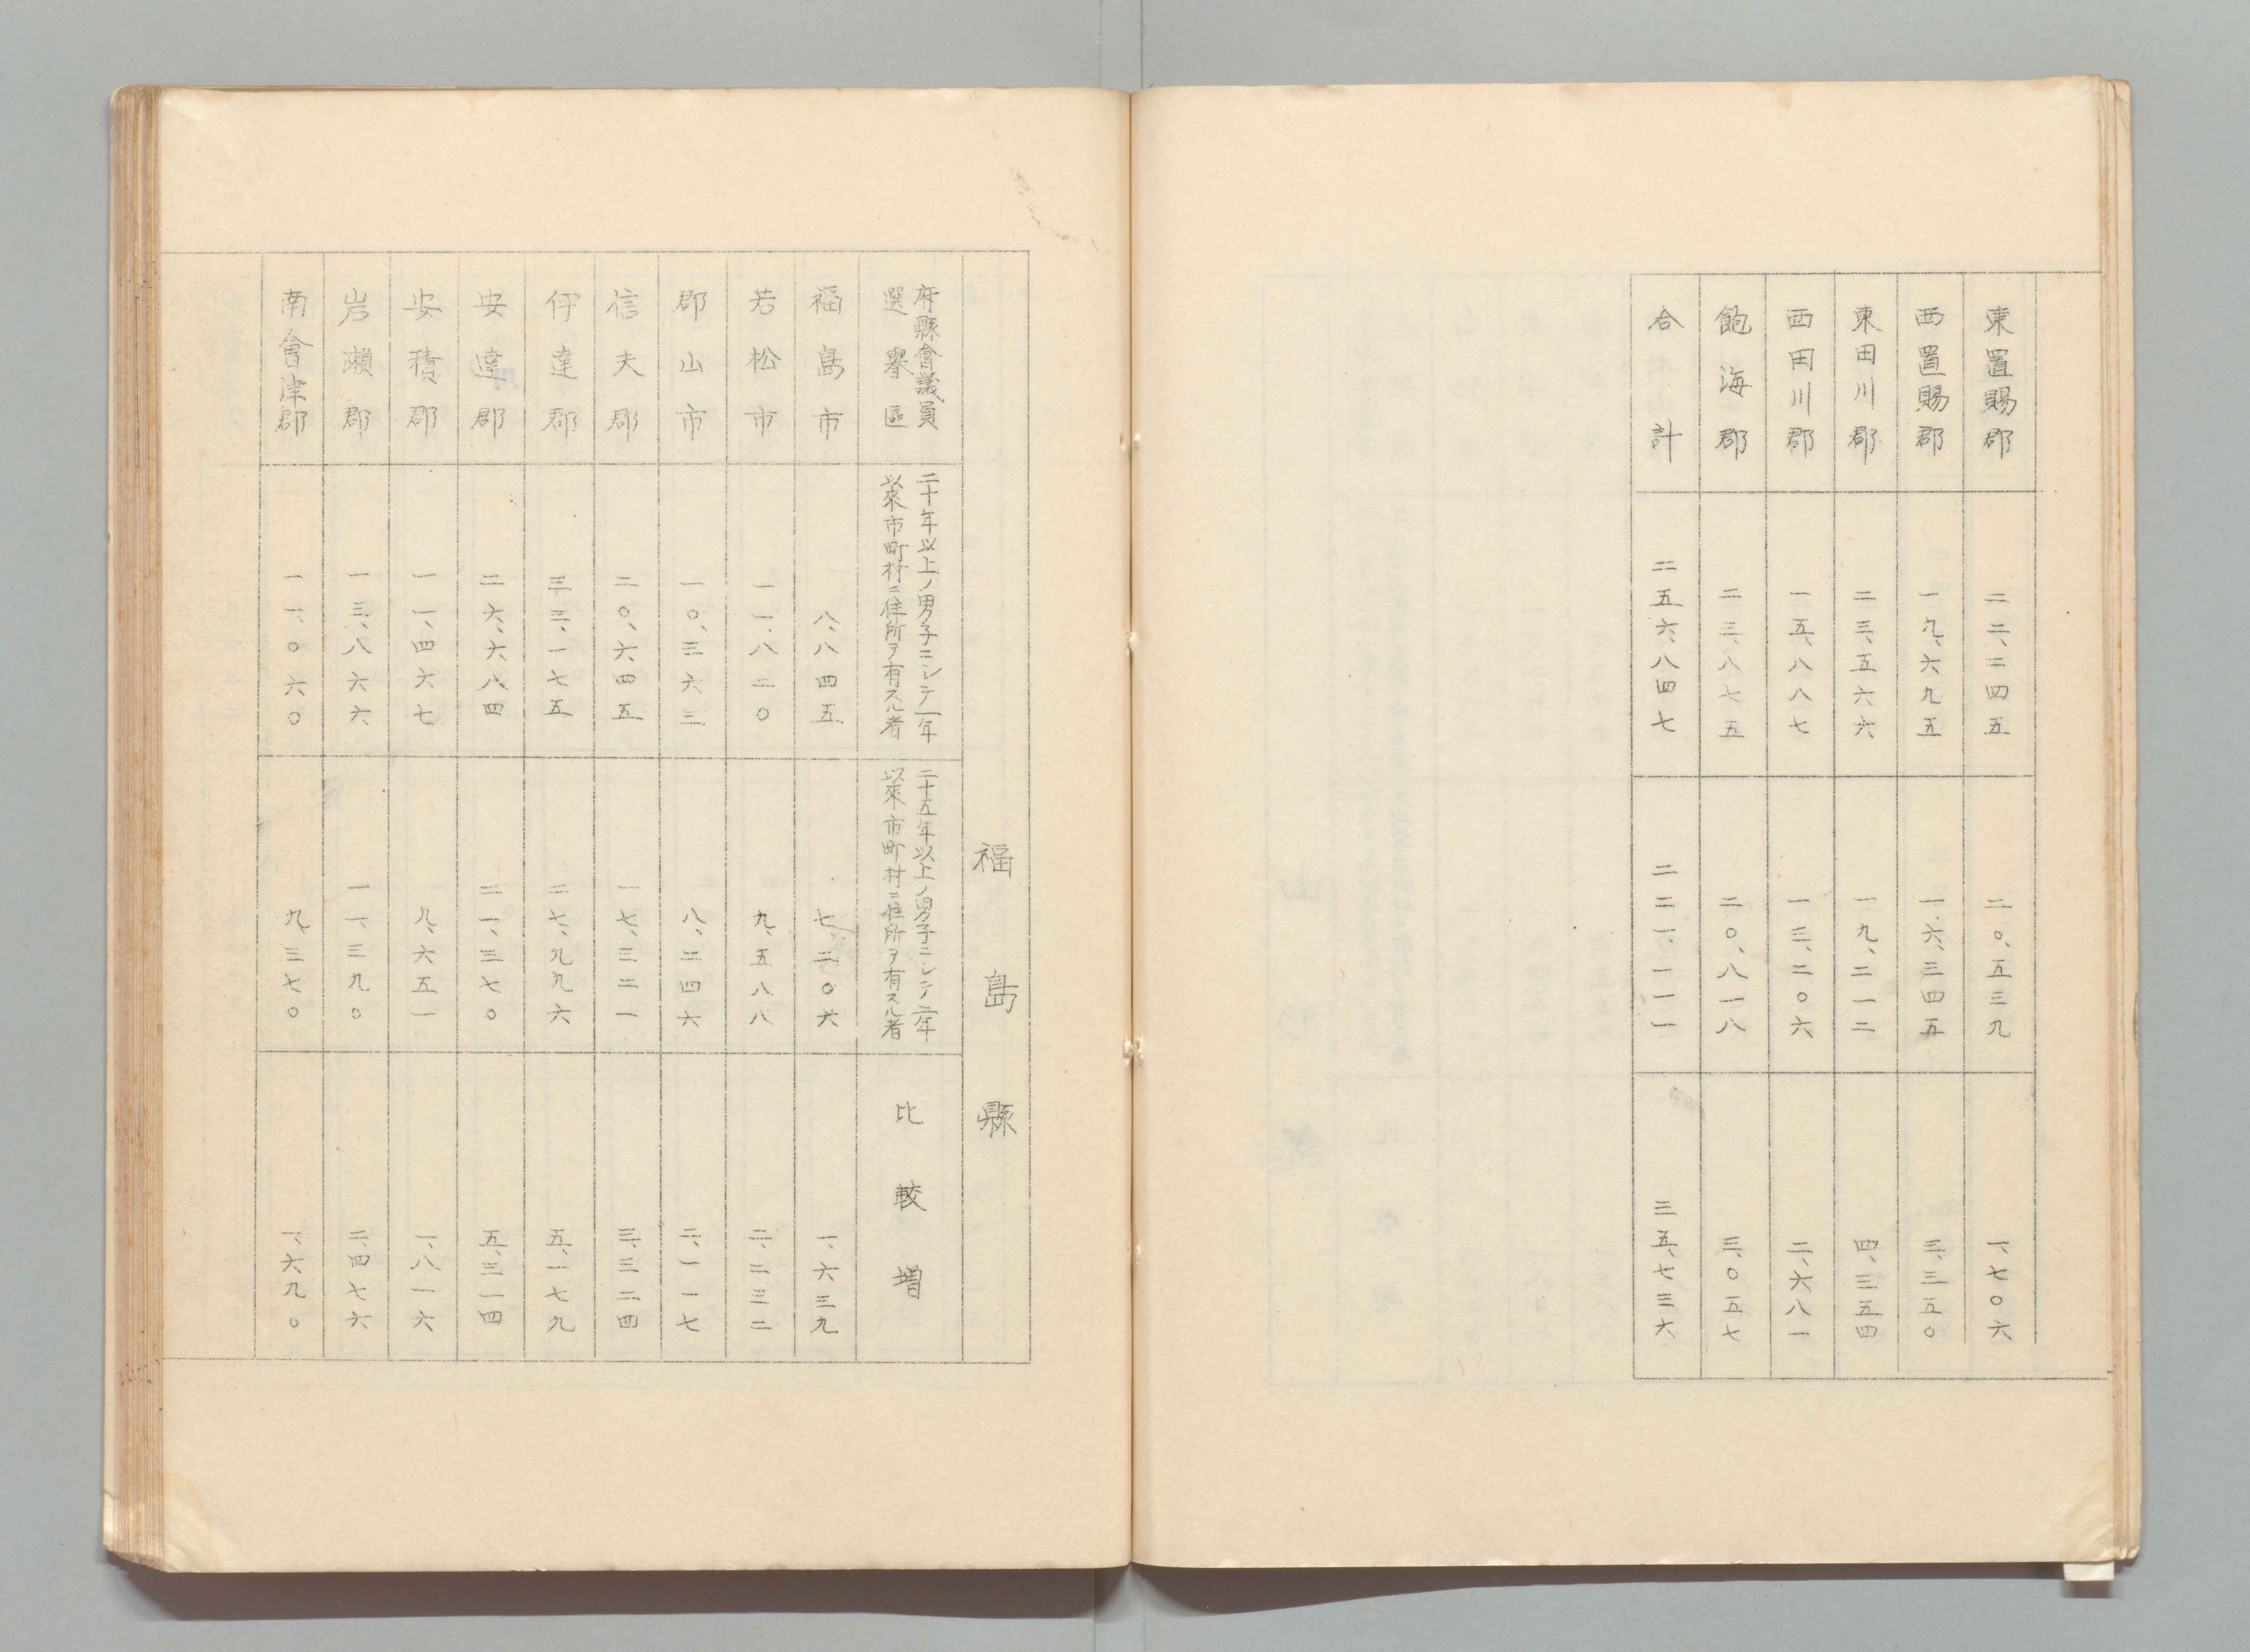 東置賜郡 二二、二四五 二〇、五三九 一、七〇六
西置賜郡 一九、六九五 一六、三四五 三、三五〇
東田川郡 二三、五六六 一九、二一二 四、三五四
西田川郡 一五、八八七 一三、二〇六 二、六八一
飽海郡 二三、八七五 二〇、八一八 三、〇五七
合計 二五六、八四七 二二一、一一一 三五、七三六
福島縣
府縣會議員
選擧區
二十年以上ノ男子ニシテ一年
以來市町村ニ住所ヲ有スル者
二十五年以上ノ男子ニシテ二年
以來市町村ニ住所ヲ有スル者
比較増
福島市 八、八四五 七、二〇六 一、六三九
若松市 一一、八二〇 九、五八八 二、二三二
郡山市 一〇、三六三 八、二四六 二、一一七
信夫郡 二〇、六四五 一七、三二一 三、三二四
伊達郡 三三、一七五 二七、九九六 五、一七九
安達郡 二六、六八四 二一、三七〇 五、三一四
安積郡 一一、四六七 九、六五一 一、八一六
岩瀬郡 一三、八六六 一一、三九〇 二、四七六
南會津郡 一一、〇六〇 九、三七〇 一、六九〇